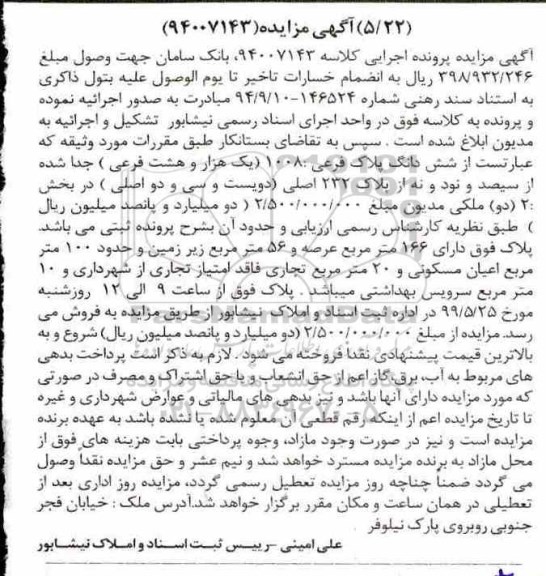 (۵/۲۲) آگهی مزایده (۹۴۰۰۷۱۴۳)
آگهی مزایده پرونده اجرایی کلاسه ۹۴۰۰۷۱۴۳، بانک سامان جهت وصول مبلغ
۳۹۸/۹۳۲/۲۴۶ ریال به انضمام خسارات تاخیر تا یوم الوصول علیه بتول ذاکری
به استناد سند رهنی شماره ۱۴۶۵۲۴-۹۴/۹/۱۰ مبادرت به صدور اجرائیه نموده
و پرونده به کلاسه فوق در واحد اجرای اسناد رسمی نیشابور تشکیل و اجرائیه به
مدیون ابلاغ شده است . سپس به تقاضای بستانکار طبق مقررات مورد وثیقه که
عبارتست از شش دانگ پلاک فرعی :۱۰۰۸ (یک هزار و هشت فرعی ) جدا شده
از سیصد و نود و نه از پلاک ۲۳۲ اصلی (دویست و سی و دو اصلی ) در بخش
:۲ (دو) ملکی مدیون مبلغ ۲/۵۰۰/۰۰۰/۰۰۰ ( دو میلیارد و پانصد میلیون ریال
) طبق نظریه کارشناس رسمی ارزیابی و حدود آن بشرح پرونده ثبتی می باشد.
پلاک فوق دارای ۱۶۶ متر مربع عرصه و ۵۶ متر مربع زیر زمین و حدود ۱۰۰ متر
مربع اعیان مسکونی و ۲۰ متر مربع تجاری فاقد امتیاز تجاری از شهرداری و ۱۰
متر مربع سرویس بهداشتی میباشد . پلاک فوق از ساعت ۹ الی ۱۲ روزشنبه
مورخ ۹۹/۵/۲۵ در اداره ثبت اسناد و املاک نیشابور از طریق مزایده به فروش می
رسد. مزایده از مبلغ ۲/۵۰۰/۰۰۰/۰۰۰ (دو میلیارد و پانصد میلیون ریال) شروع و به
بالاترین قیمت پیشنهادی نقدا فروخته می شود . لازم به ذکر است پرداخت بدهی
های مربوط به آب، برق، گاز اعم از حق انشعاب و یا حق اشتراک و مصرف در صورتی
که مورد مزایده دارای آنها باشد و نیز بدهی های مالیاتی و عوارض شهرداری و غیره
تا تاریخ مزایده اعم از اینکه رقم قطعی آن معلوم شده یا نشده باشد به عهده برنده
مزایده است و نیز در صورت وجود مازاد، وجوه پرداختی بابت هزینه های فوق از
محل مازاد به برنده مزایده مسترد خواهد شد و نیم عشر و حق مزایده نقداً وصول
می گردد ضمناً چنانچه روز مزایده تعطیل رسمی گردد، مزایده روز اداری بعد از
تعطیلی در همان ساعت و مکان مقرر برگزار خواهد شد.آدرس ملک : خیابان فجر
جنوبی روبروی پارک نیلوفر
علی امینی -رییس ثبت اسناد و املاک نیشابور